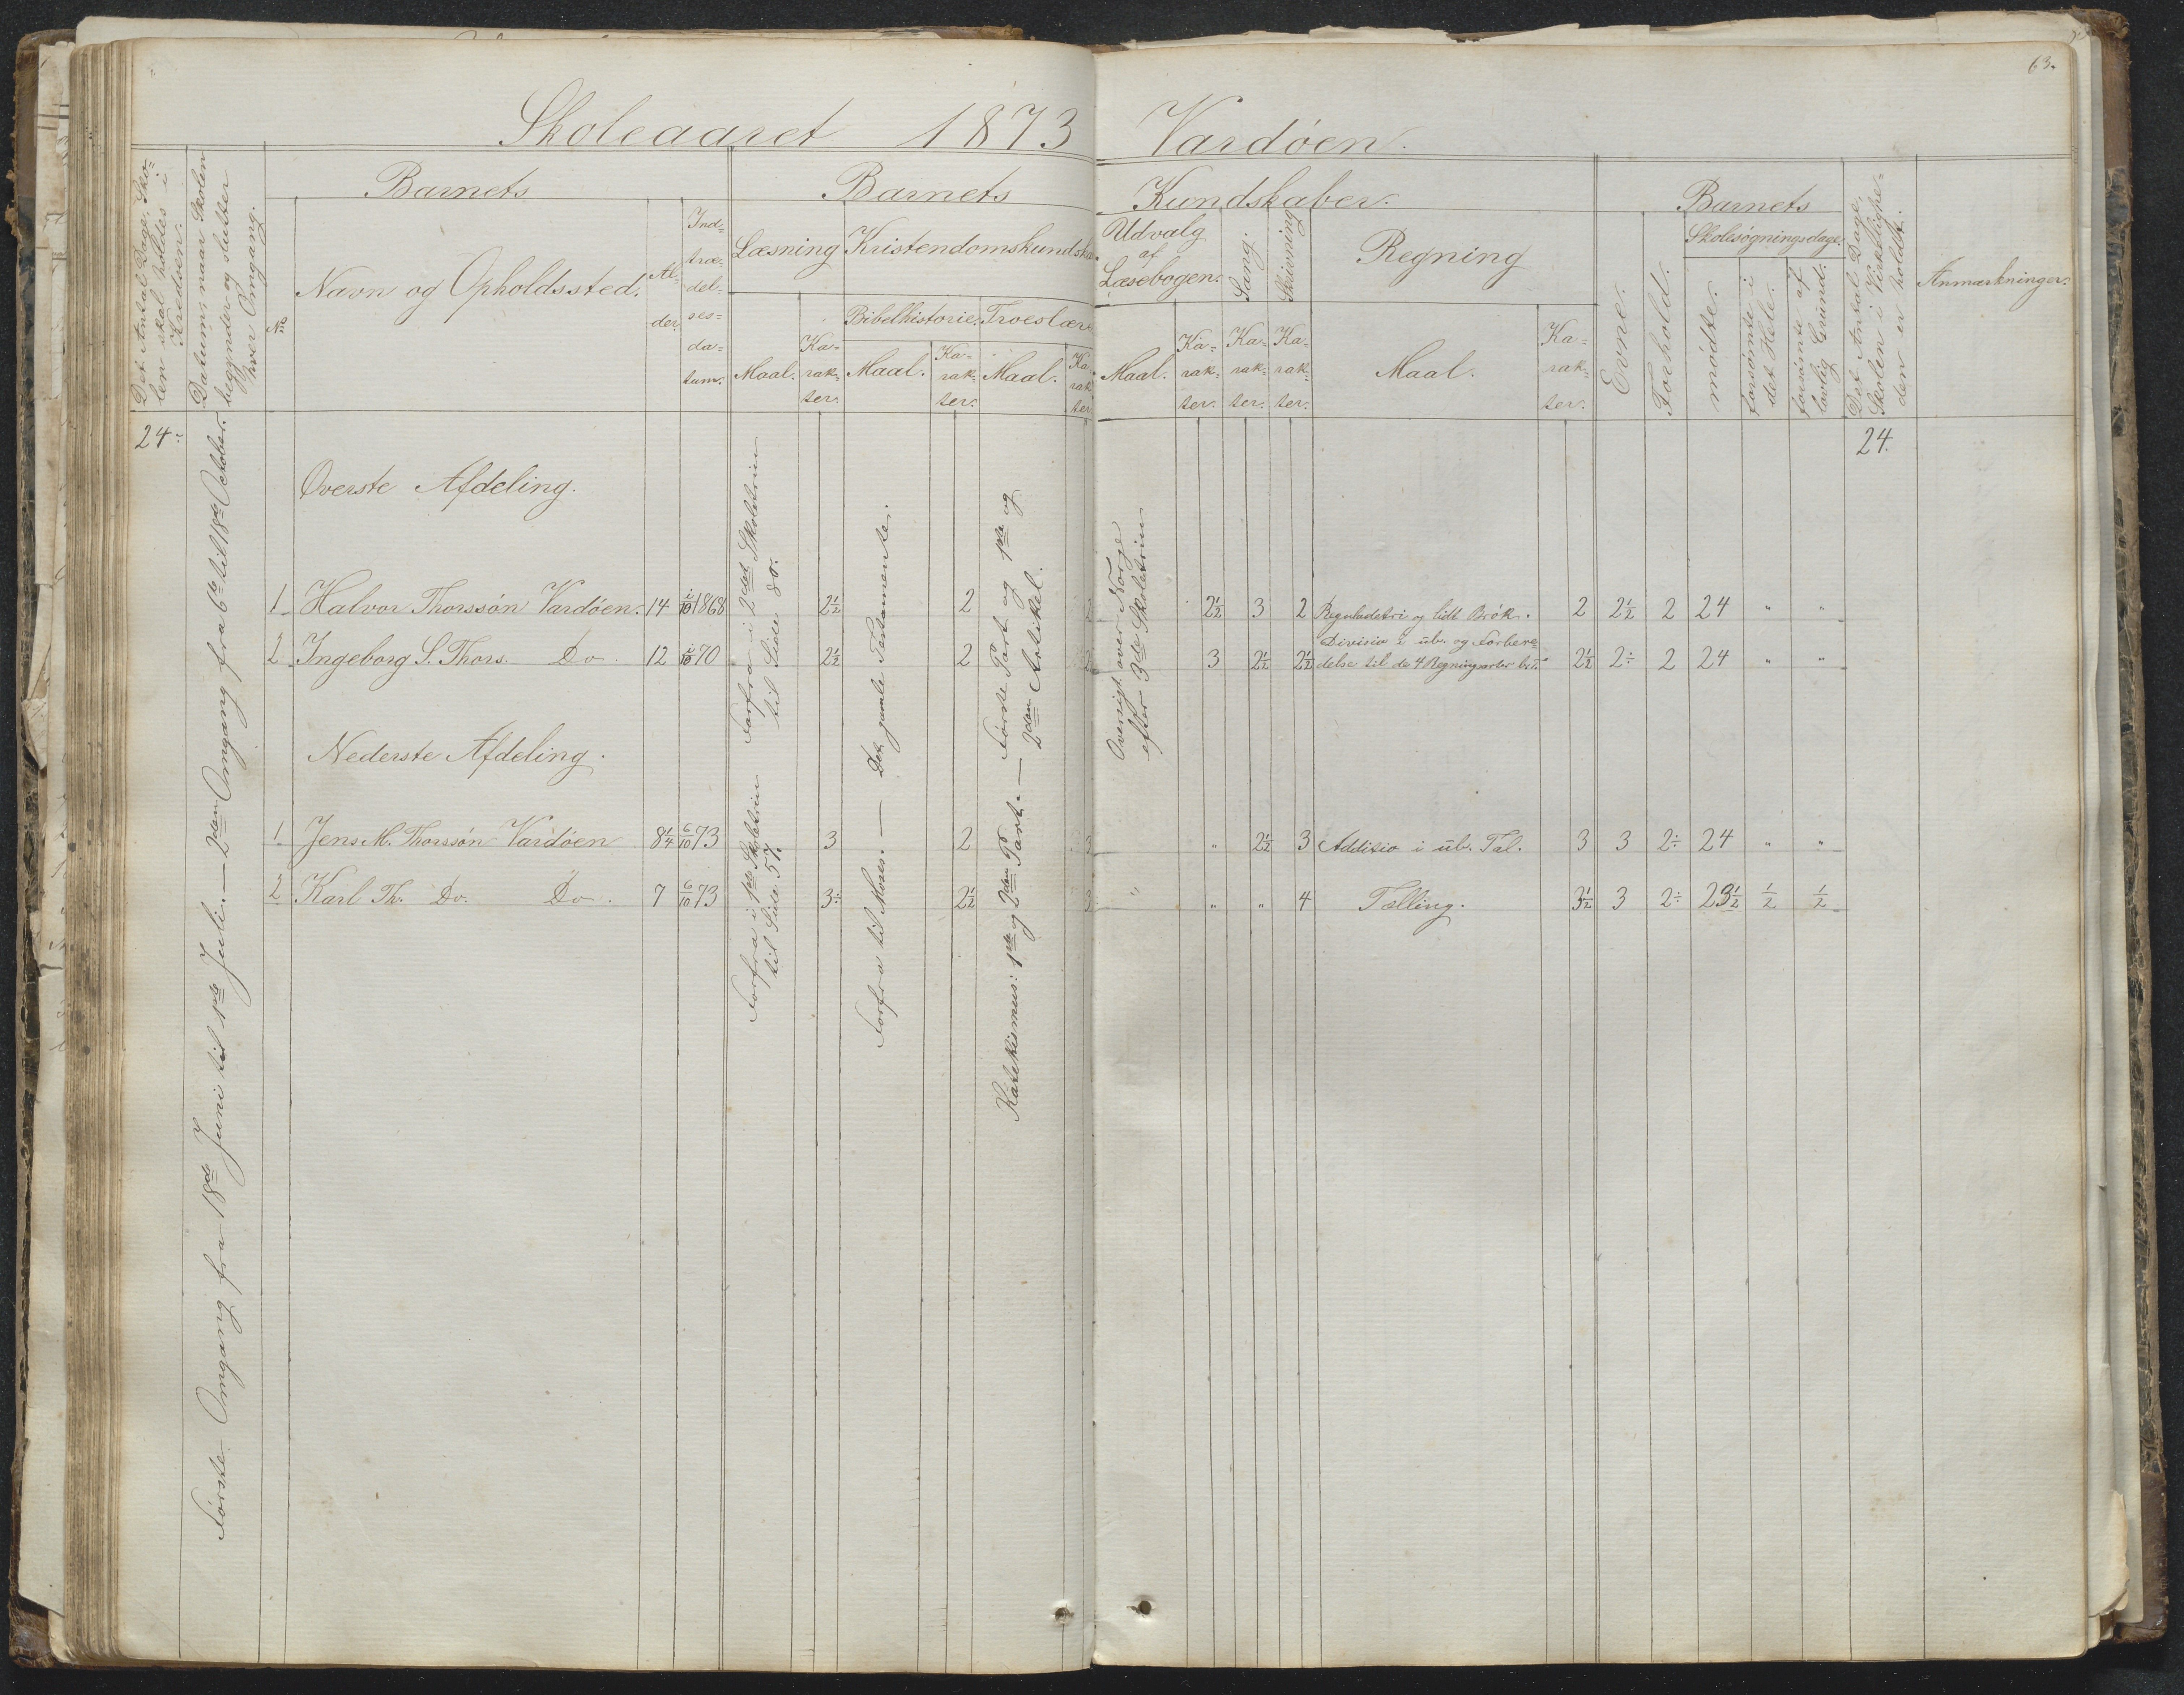 63.
Skoleaaret 1873 Vardöen.
Det Antal Dage, Sko-
len skal holdes i
Kredsen.
Datum, naar Skolen
begynder og slutter
hver Omgang.
Barnets
No
Navn og Opholdssted.
Al-
der.
Ind-
træ-
del-
ses-
da-
tum.
Barnets Kundskaber.
Læsning
Maal.
Ka-
rak-
ter.
Kristendomskundska
Bibelhistorie.
Maal.
Ka-
rak-
ter.
Troeslære
Maal.
Ka-
rak-
ter.
Udvalg
af
Læsebogen.
Maal.
Ka-
rak-
ter.
Sang.
Ka-
rak-
ter.
Skrivning
Ka-
rak-
ter.
Regning
Maal.
Ka-
rak-
ter.
Barnets
Evne.
Forhold.
Skolesøgningsdage.
mödte.
forsömte i
det Hele.
forsömte af
lovlig Grund.
Det Antal Dage,
Skolen i Virkelighe-
den er holdt.
Anmærkninger.
24.
Første Omgang fra 18de Juni til 1ste Juli. — 2den Omgang fra 6te til 18de October.
Øverste Afdeling.
24.
Forfra i 2det Skoletrin
til Side 80.
Forfra til Moses. — Det gamle Testamente.
Katekismus: 1ste og 2den Part. — Første Part og 1ste og
2den Artikel.
Oversigt over Norge
efter 3de Skoletrin
1 Halvor Thorssön Vardöen. 14 1/10 1868 2½ 2 2 2½ 3 2 Reguladetri og lidt Brök. 2 2½ 2 24 " "
2 Ingeborg S. Thors. Do. 12 1/10 70 2½ 2 2 3 2½ 2½ Divisio i ub. og Forbere-
delse til de 4 Regningsarter be. 2½ 2÷ 2 24 " "
Nederste Afdeling.
Forfra i 1ste Skoletrin
til Side 57.
1 Jens M. Thorssön Vardöen 8¼ 6/10 73 3 2 3 " 2½ 3 Additio i ub. Tal. 3 3 2÷ 24 " "
2 Karl Th. Do. Do. 7 6/10 73 3÷ 2½ 3 " " " 4 Tælling. 3½ 3 2÷ 23½ ½ ½